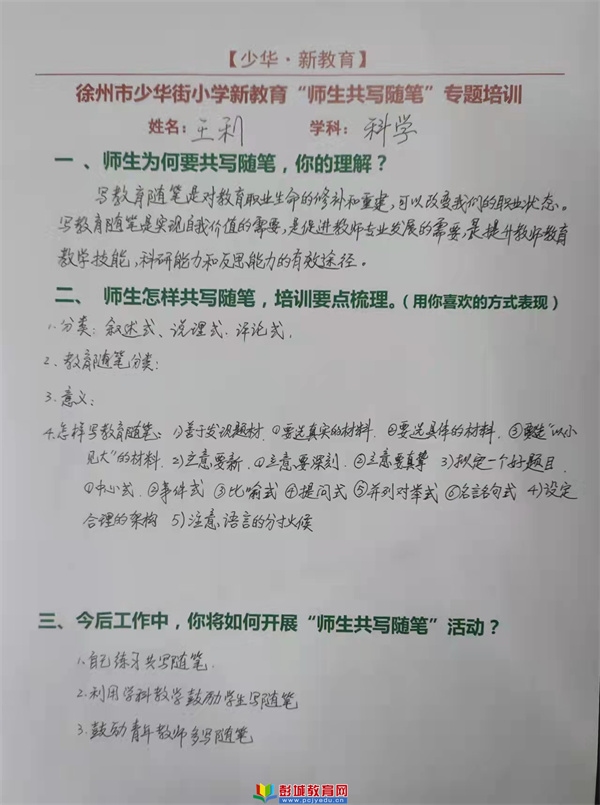 【少华·新教育】
徐州市少华街小学新教育“师生共写随笔”专题培训
姓名：王利 学科：科学
一、师生为何要共写随笔，你的理解？
写教育随笔是对教育职业生命的修补和重建，可以改变我们的职业状态。
写教育随笔是实现自我价值的需要，是促进教师专业发展的需要，是提升教师教育
教学技能，科研能力和反思能力的有效途径。
二、 师生怎样共写随笔，培训要点梳理。（用你喜欢的方式表现）
1.分类：叙述式、说理式.评论式.
2.教育随笔分类：
3.意义：
4.怎样写教育随笔：1)善于发识题材.①要选真实的材料.②要选具体的材料.③要选“以小
见大”的材料.2)立意要新.①立意要深刻.②立意要真挚 3)拟定一个好题目.
①中心式.②事件式③比喻式④提问式⑤并列对举式⑥名言名句式 4)设定
合理的架构 5)注意语言的分寸火候
三、今后工作中，你将如何开展“师生共写随笔”活动？
1.自己练习共写随笔.
2.利用学科教学鼓励学生写随笔
3.鼓励青年教师多写随笔
彭城教育网
www.pcjyedu.cn